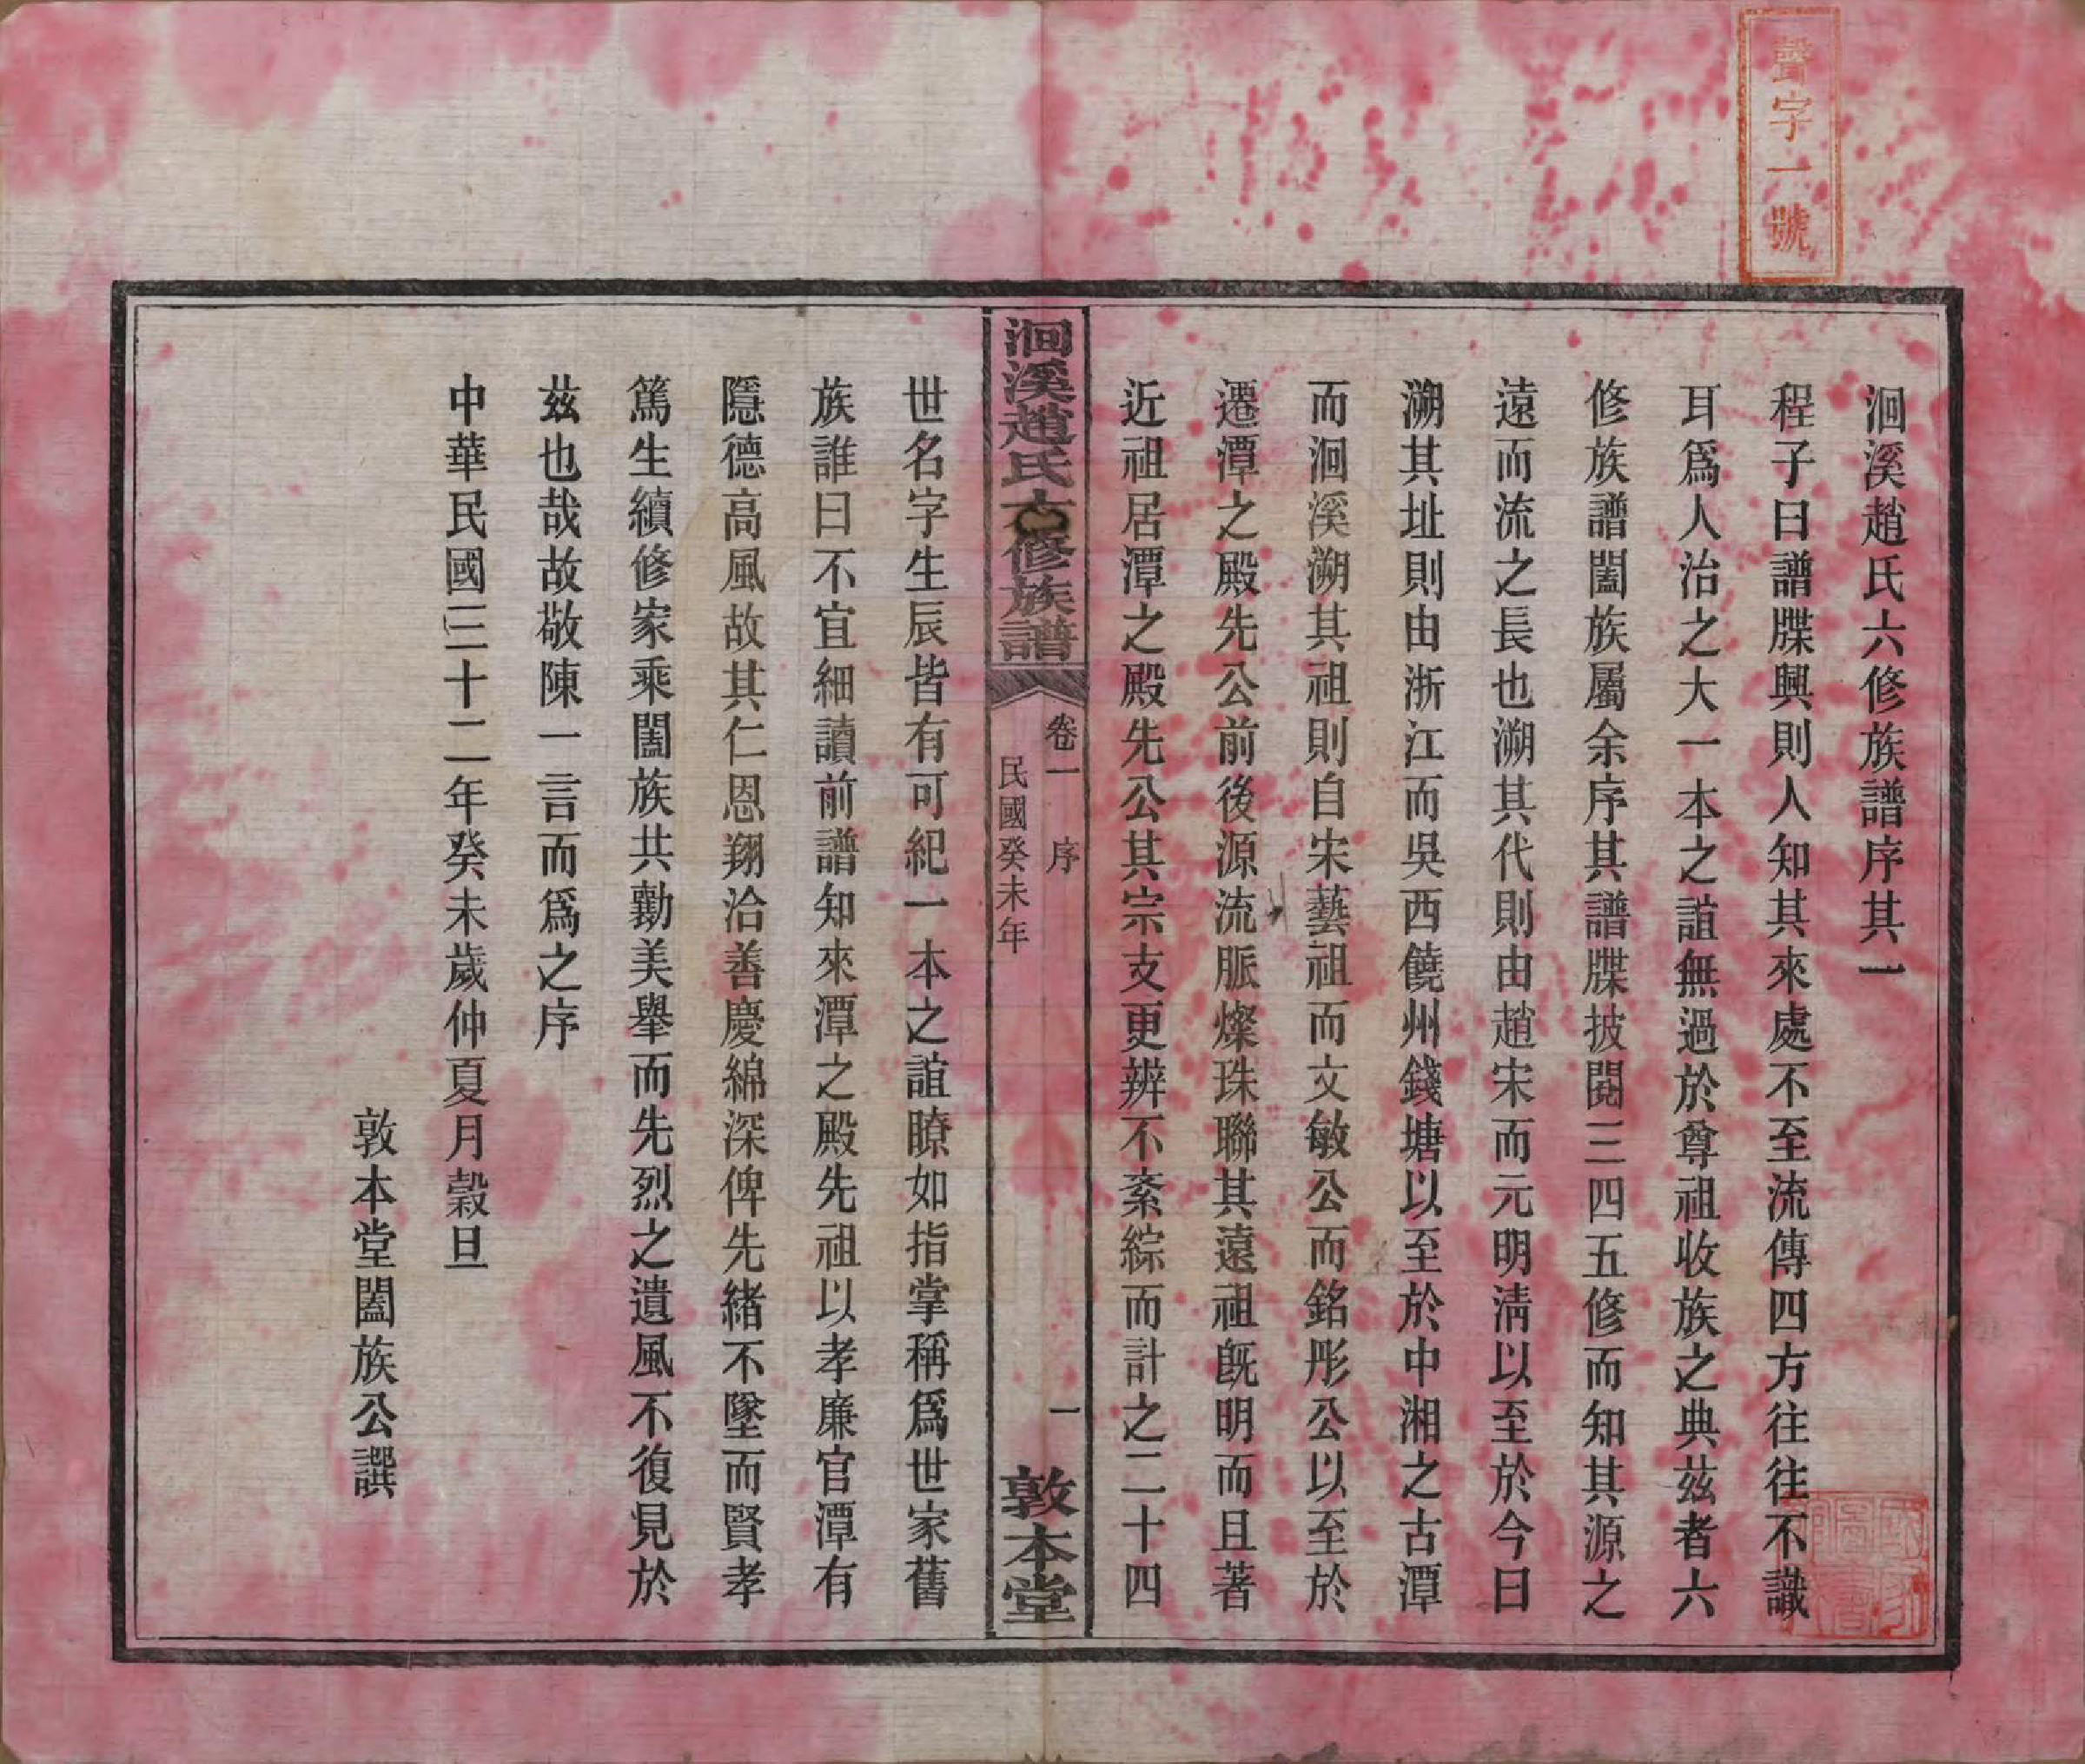 聲字一號
洄溪趙氏六修族譜序其一
程子曰譜牒興則人知其來處不至流傳四方往往不識
耳爲人治之大一本之誼無過於尊祖收族之典茲者六
修族譜闔族屬余序其譜牒披閱三四五修而知其源之
遠而流之長也溯其代則由趙宋而元明淸以至於今日
溯其址則由浙江而吳西饒州錢塘以至於中湘之古潭
而洄溪溯其祖則自宋藝祖而文敏公而銘彤公以至於
遷潭之殿先公前後源流脈燦珠聯其遠祖旣明而且著
近祖居潭之殿先公其宗支更辨不紊綜而計之二十四
洄溪趙氏六修族譜
卷一 序
民國癸未年
一
敦本堂
世名字生辰皆有可紀一本之誼瞭如指掌稱爲世家舊
族誰曰不宜細讀前譜知來潭之殿先祖以孝廉官潭有
隱德高風故其仁恩翔洽善慶綿深俾先緒不墜而賢孝
篤生續修家乘闔族共勷美舉而先烈之遺風不復見於
茲也哉故敬陳一言而爲之序
中華民國三十二年癸未歲仲夏月穀旦
敦本堂闔族公譔